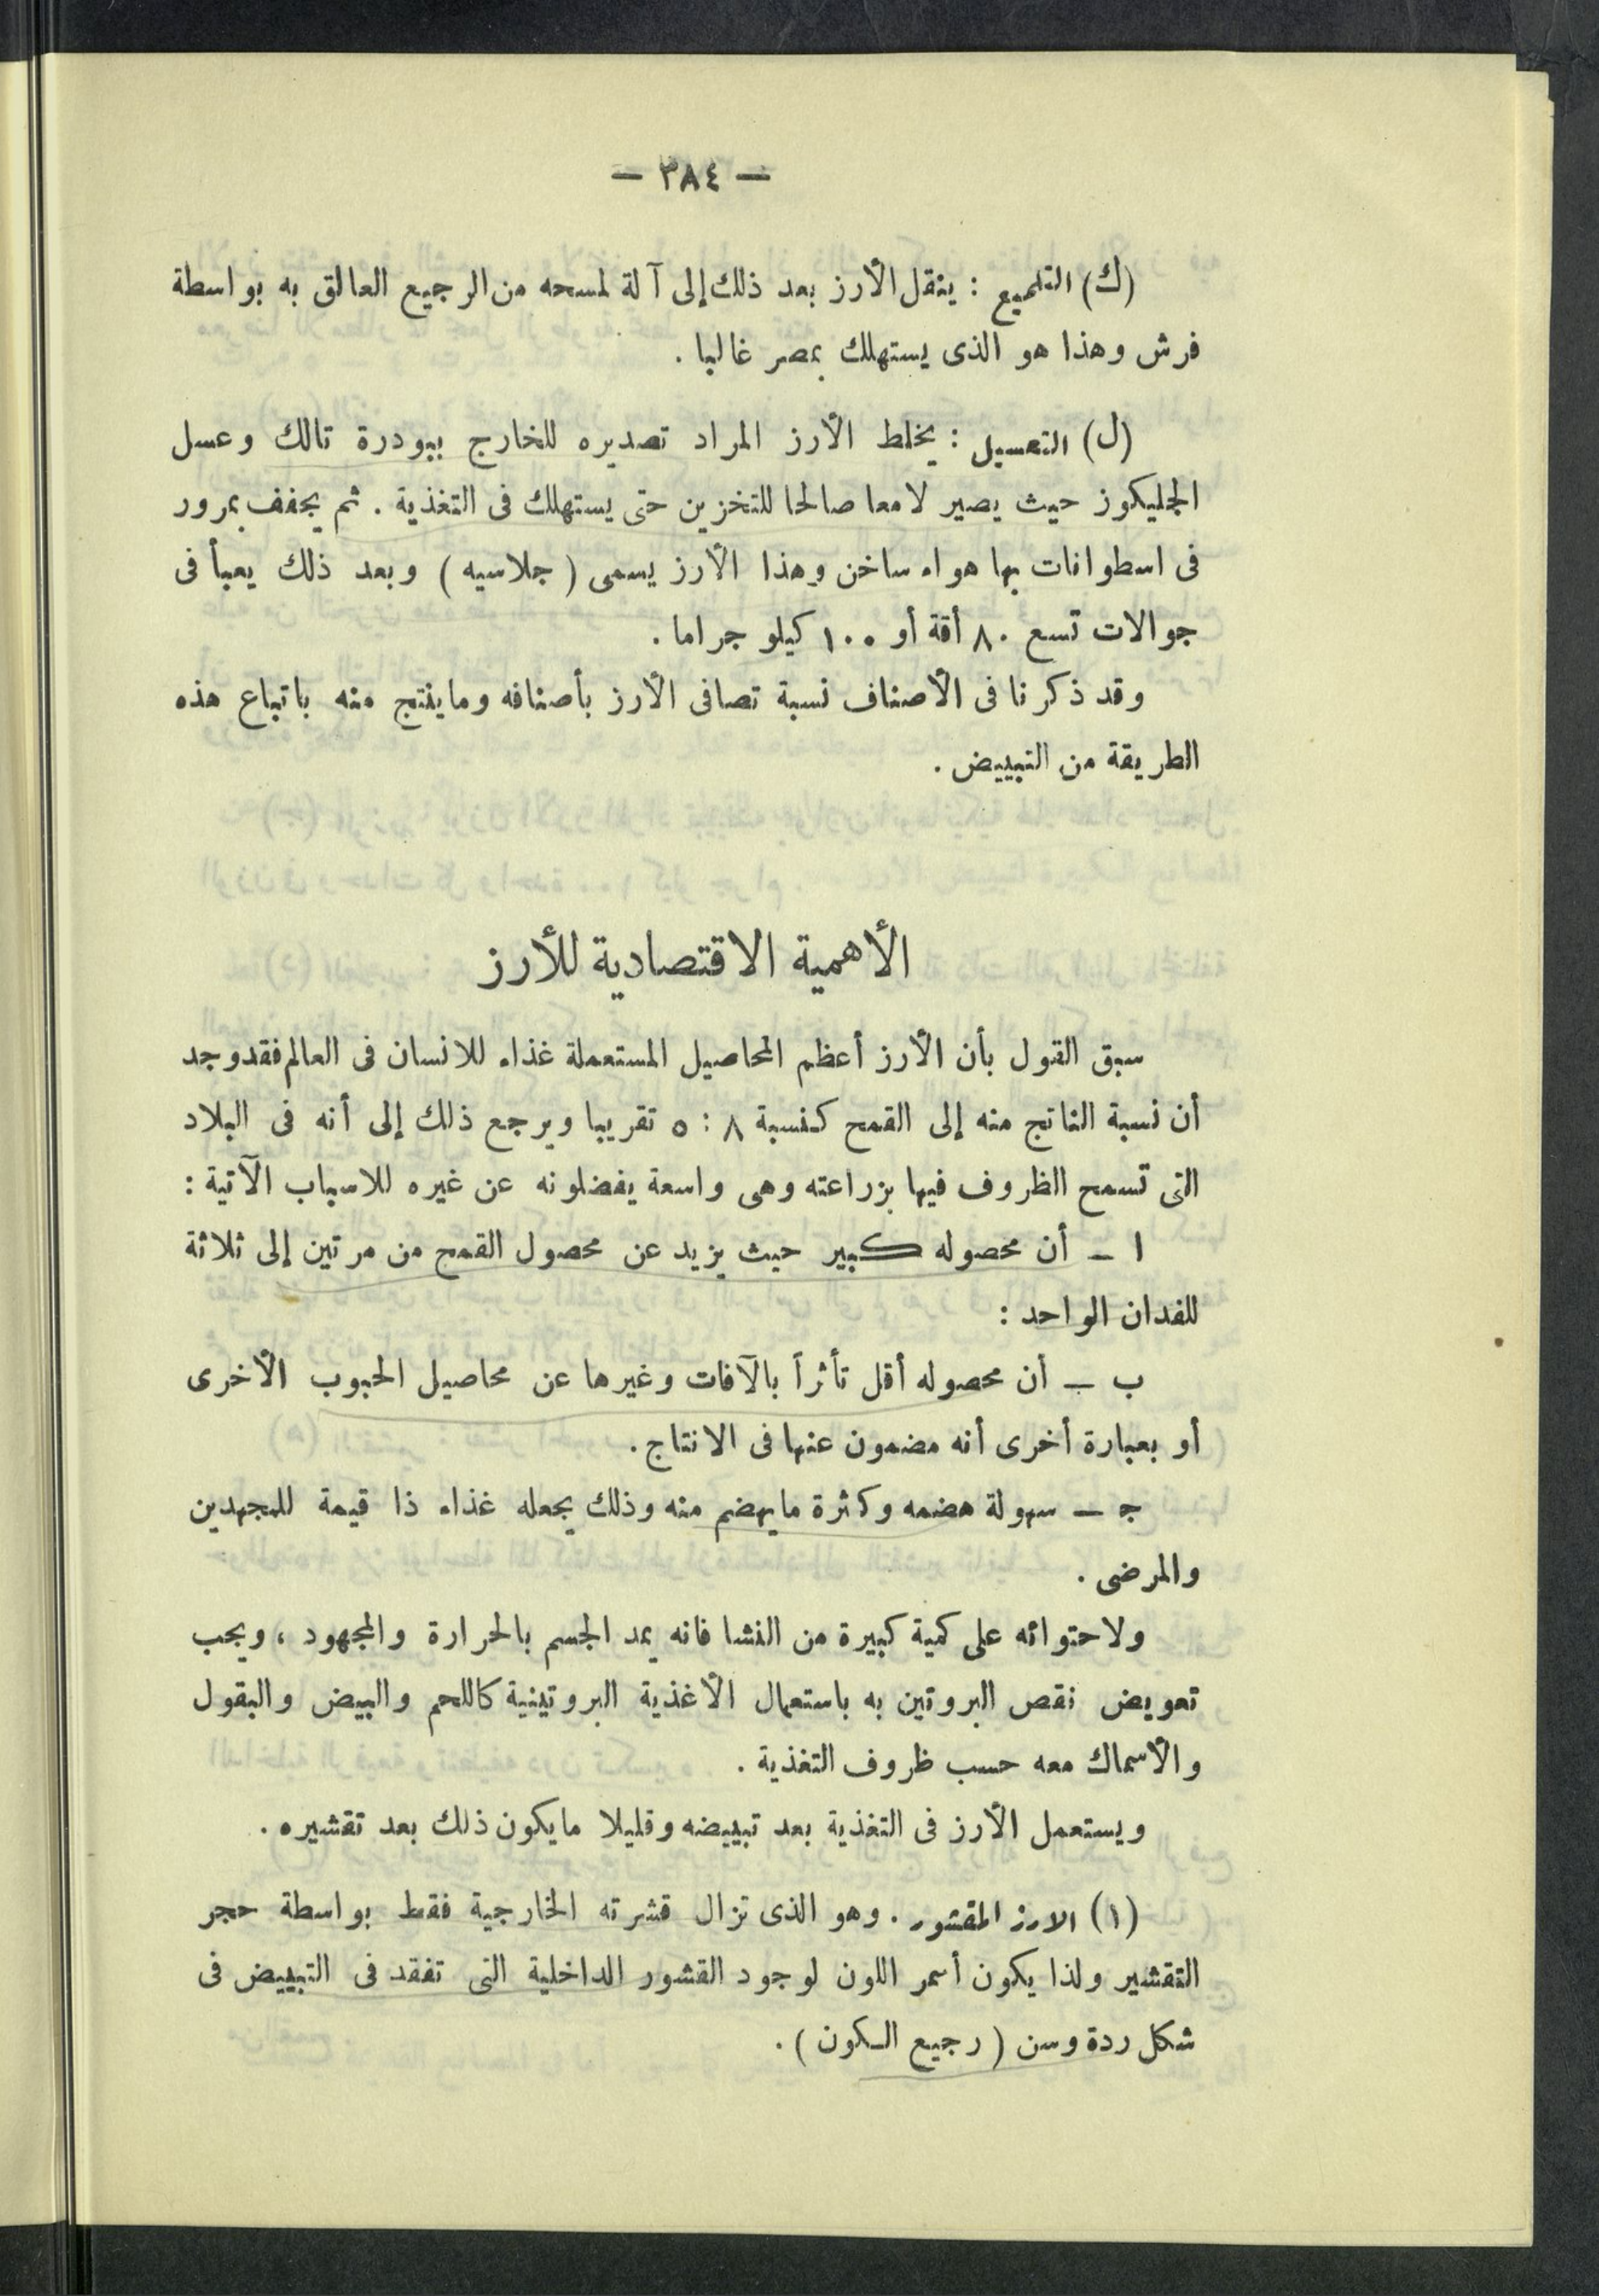 — ٣٨٤ —
(ك) التلميع : ينقل الأرز بعد ذلك إلى آلة لمسحه من الرجيع العالق به بواسطة
فرش وهذا هو الذى يستهلك بمصر غالبا .
(ل) التعسيل : يخلط الأرز المراد تصديره للخارج ببودرة تالك وعسل
الجليكوز حيث يصير لامعا صالحا للتخزين حتى يستهلك فى التغذية . ثم يجفف بمرور
فى اسطوانات بها هواء ساخن وهذا الأرز يسمى ( جلاسيه ) وبعد ذلك يعبأ فى
جوالات تسع ٨٠ أقة أو ١٠٠ كيلو جراما .
وقد ذكرنا فى الأصناف نسبة تصافى الأرز بأصنافه وما ينتج منه باتباع هذه
الطريقة من التبييض .
الأهمية الاقتصادية للأرز
سبق القول بأن الأرز أعظم المحاصيل المستعملة غذاء للانسان فى العالم فقد وجد
أن نسبة الناتج منه إلى القمح كنسبة ٨ : ٥ تقريبا ويرجع ذلك إلى أنه فى البلاد
التى تسمح الظروف فيها بزراعته وهى واسعة يفضلونه عن غيره للاسباب الآتية :
ا — أن محصوله كبير حيث يزيد عن محصول القمح من مرتين إلى ثلاثة
للفدان الواحد :
ب — أن محصوله أقل تأثراً بالآفات وغيرها عن محاصيل الحبوب الأخرى
أو بعبارة أخرى أنه مضمون عنها فى الانتاج .
ج — سهولة هضمه وكثرة ما يهضم منه وذلك يجعله غذاء ذا قيمة للمجهدين
والمرضى .
ولاحتوائه على كمية كبيرة من النشا فانه يمد الجسم بالحرارة والمجهود ، ويجب
تعويض نقص البروتين به باستعمال الأغذية البروتينية كاللحم والبيض والبقول
والأسماك معه حسب ظروف التغذية .
ويستعمل الأرز فى التغذية بعد تبييضه وقليلا ما يكون ذلك بعد تقشيره .
(١) الارز المقشور . وهو الذى تزال قشرته الخارجية فقط بواسطة حجر
التقشير ولذا يكون أسمر اللون لوجود القشور الداخلية التى تفقد فى التبييض فى
شكل ردة وسن ( رجيع الكون ) .